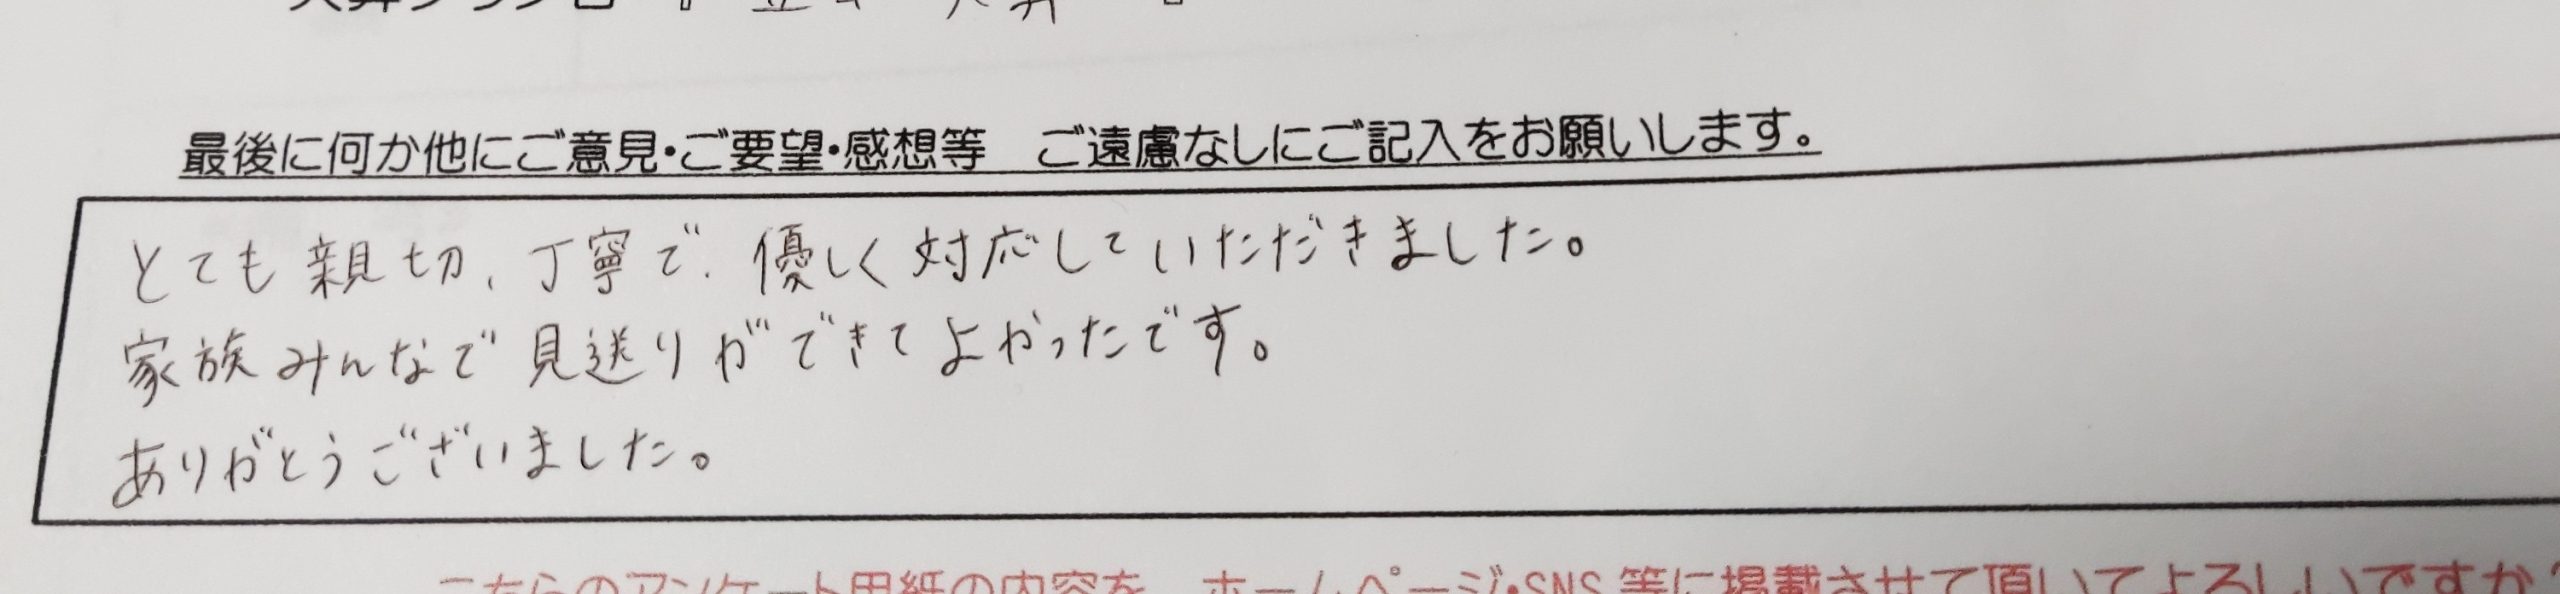 最後に何か他にご意見・ご要望・感想等　ご遠慮なしにご記入をお願いします。
とても親切、丁寧で、優しく対応していただきました。
家族みんなで見送りができてよかったです。
ありがとうございました。
こちらのアンケート用紙の内容を、ホームページ・SNS等に掲載させて頂いてよろしいですか?